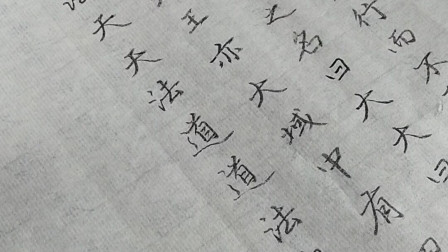 行而不
之名曰大大曰
王亦大域中有
天天法道道法